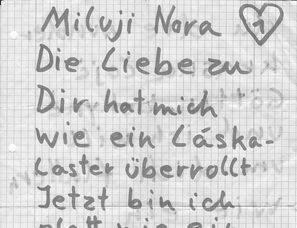 Miluji Nora 1
Die Liebe zu
Dir hat mich
wie ein Láska-
Laster überrollt
Jetzt bin ich
platt wie ein